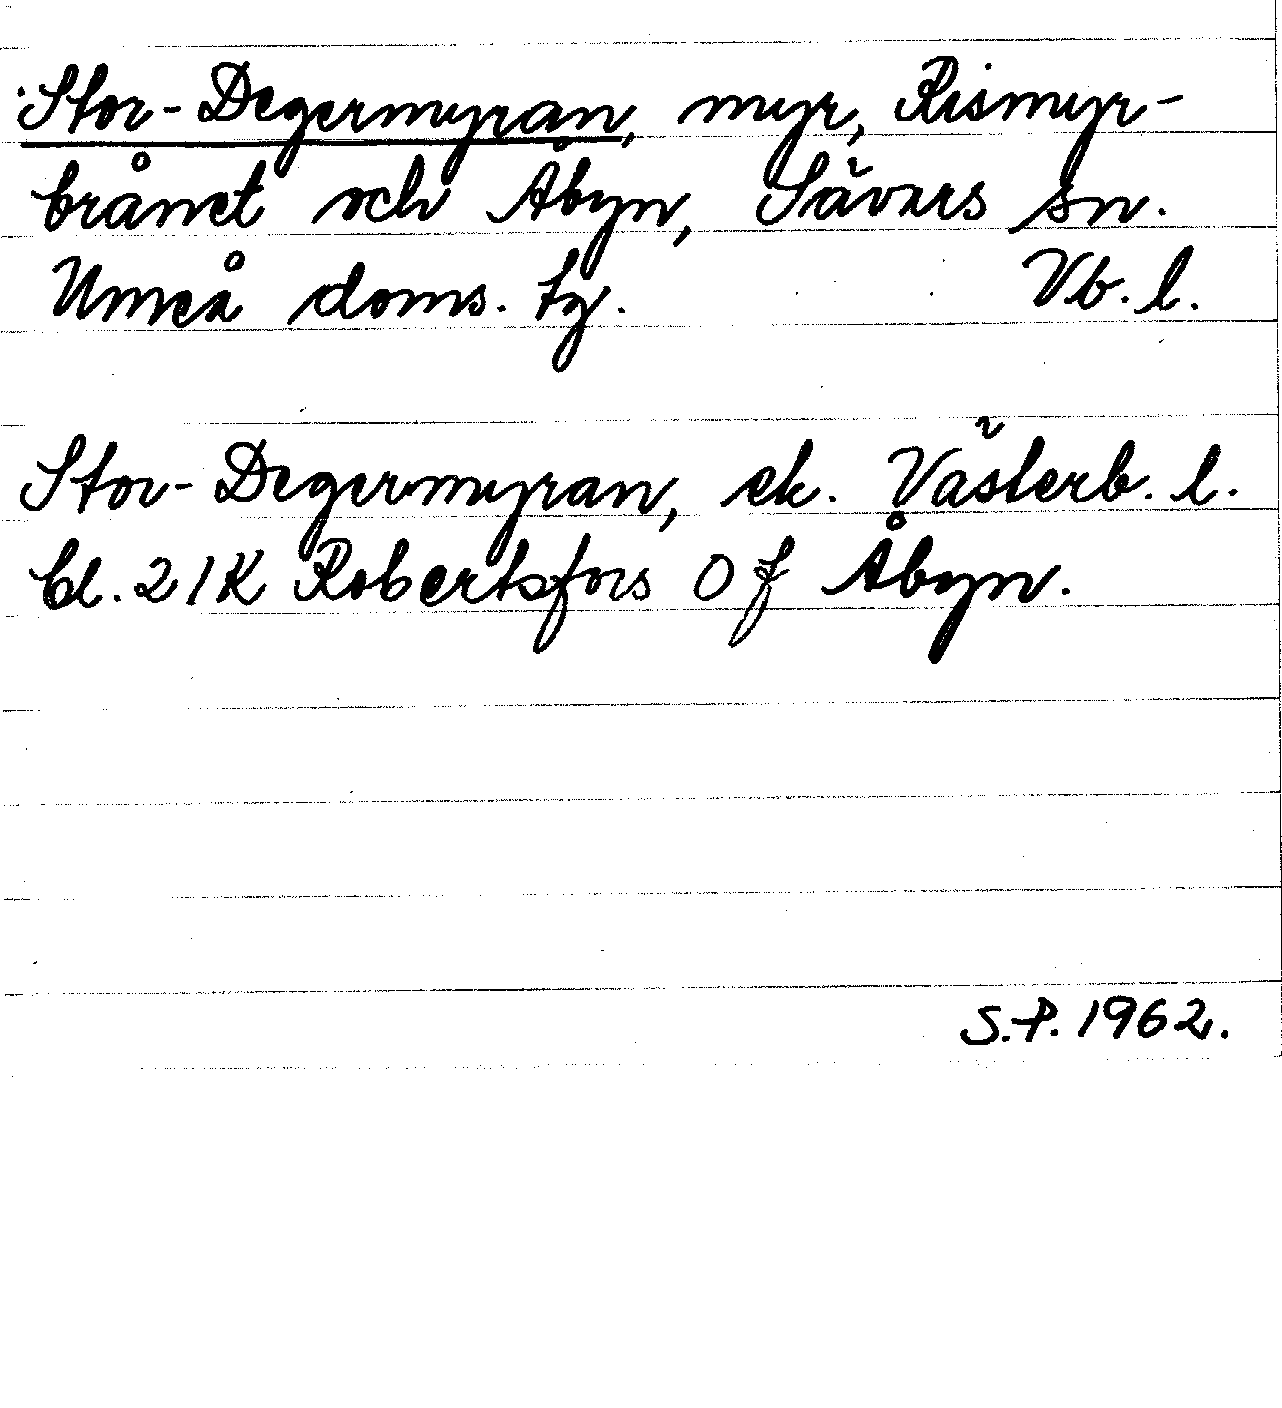 Stor-Degermyran, myr, Rismyr-
brånet och Åbyn, Sävars sn.
Umeå doms. tg. Vb. l.
Stor-Degermyran, ek. Västerb. l.
bl. 21K Robertsfors 0 f Åbyn.
S.P. 1962.